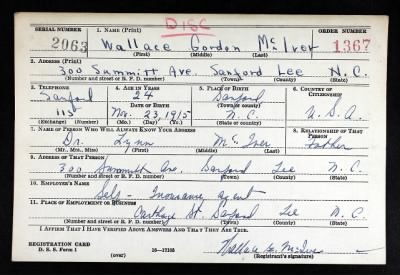 DISC
SERIAL NUMBER 1. NAME (Print) ORDER NUMBER
2063 Wallace Gordon McIver 1367
(First) (Middle) (Last)
2. ADDRESS (Print)
300 Summitt Ave. Sanford Lee N.C.
(Number and street or R. F. D. number) (Town) (County) (State)
3. TELEPHONE 4. AGE IN YEARS 5. PLACE OF BIRTH 6. COUNTRY OF CITIZENSHIP
Sanford 24 Sanford
DATE OF BIRTH (Town or county)
115 Nov. 23, 1915 N.C. U.S.A.
(Exchange) (Number) (Mo.) (Day) (Yr.) (State or country)
7. NAME OF PERSON WHO WILL ALWAYS KNOW YOUR ADDRESS 8. RELATIONSHIP OF THAT PERSON
Dr. Lynn McIver Father
(Mr., Mrs., Miss) (First) (Middle) (Last)
9. ADDRESS OF THAT PERSON
300 Summitt Ave. Sanford Lee N.C.
(Number and street or R. F. D. number) (Town) (County) (State)
10. EMPLOYER'S NAME
Self - Insurance agent
11. PLACE OF EMPLOYMENT OR BUSINESS
Carthage St. Sanford Lee N.C.
(Number and street or R. F. D. number) (Town) (County) (State)
I AFFIRM THAT I HAVE VERIFIED ABOVE ANSWERS AND THAT THEY ARE TRUE.
REGISTRATION CARD
D. S. S. Form 1 16-17105 Wallace G. McIver
(over) (Registrant's signature)